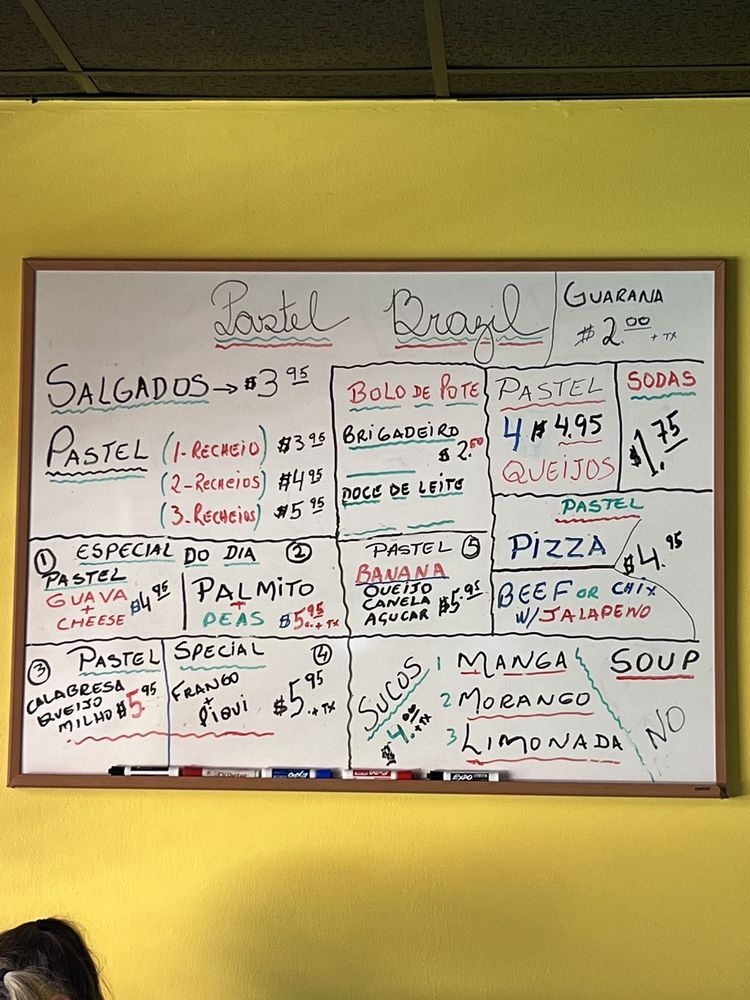 Pastel Brazil
GUARANA
$2.00 + TX
SALGADOS → $3.95
PASTEL (1-RECHEIO) $3.95
(2-RECHEIOS) $4.95
(3-RECHEIOS) $5.95
BOLO DE POTE
BRIGADEIRO
$2.50
DOCE DE LEITE
PASTEL
4 $4.95
QUEIJOS
SODAS
$1.75
PASTEL
PIZZA
$4.95
BEEF OR CHIX
W/ JALAPENO
ESPECIAL DO DIA
1 PASTEL
GUAVA
+
CHEESE
$4.95
2
PALMITO
+
PEAS $5.95 + TX
PASTEL 5
BANANA
QUEIJO
CANELA
AÇUCAR
$5.95
3 PASTEL
CALABRESA
QUEIJO
MILHO $5.95
SPECIAL 4
FRANGO
+
PIQUI
$5.95 + TX
SUCOS
$4.00 + TX
1 MANGA
2 MORANGO
3 LIMONADA
SOUP
NO
EXPO